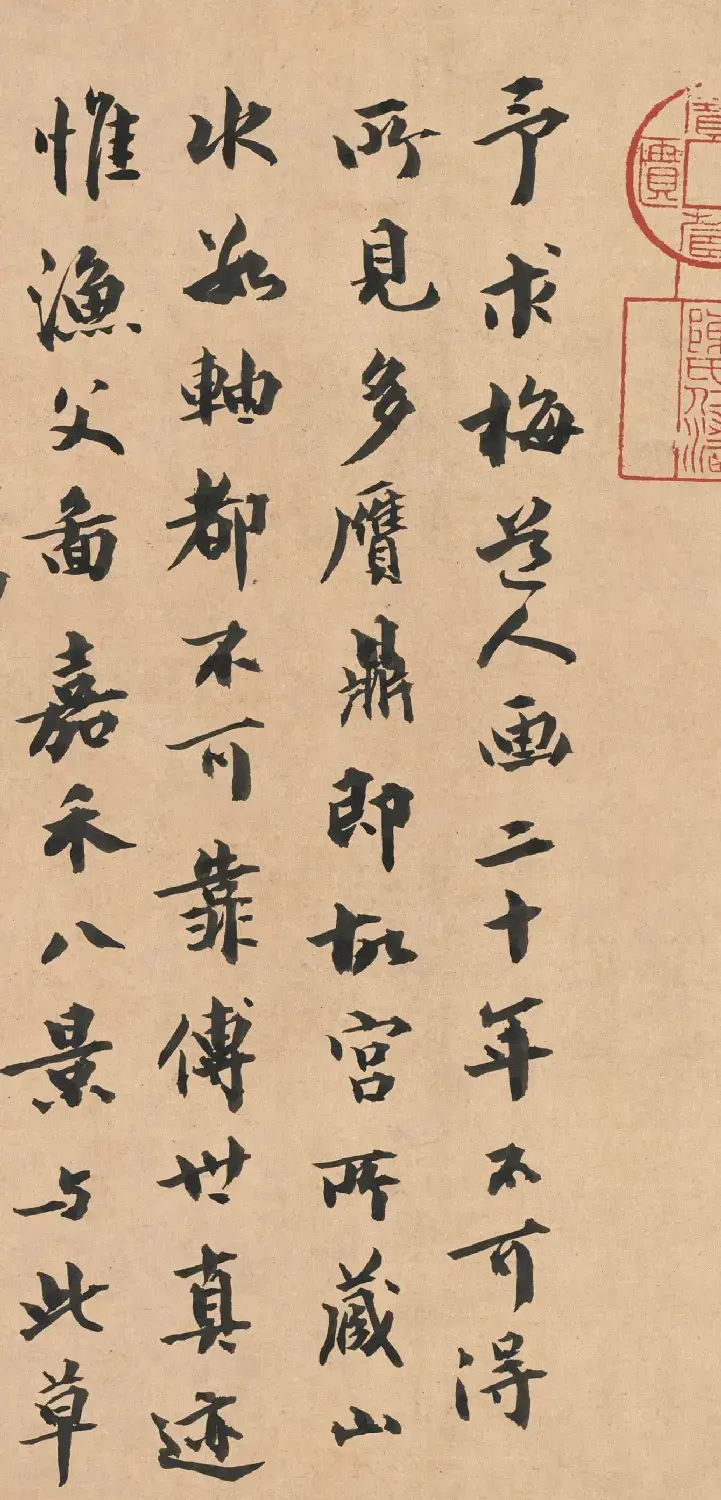 予求梅道人画二十年不可得
所見多贋鼎即故宮所蔵山
水數軸都不可靠傳世真迹
惟漁父啚嘉禾八景与此草